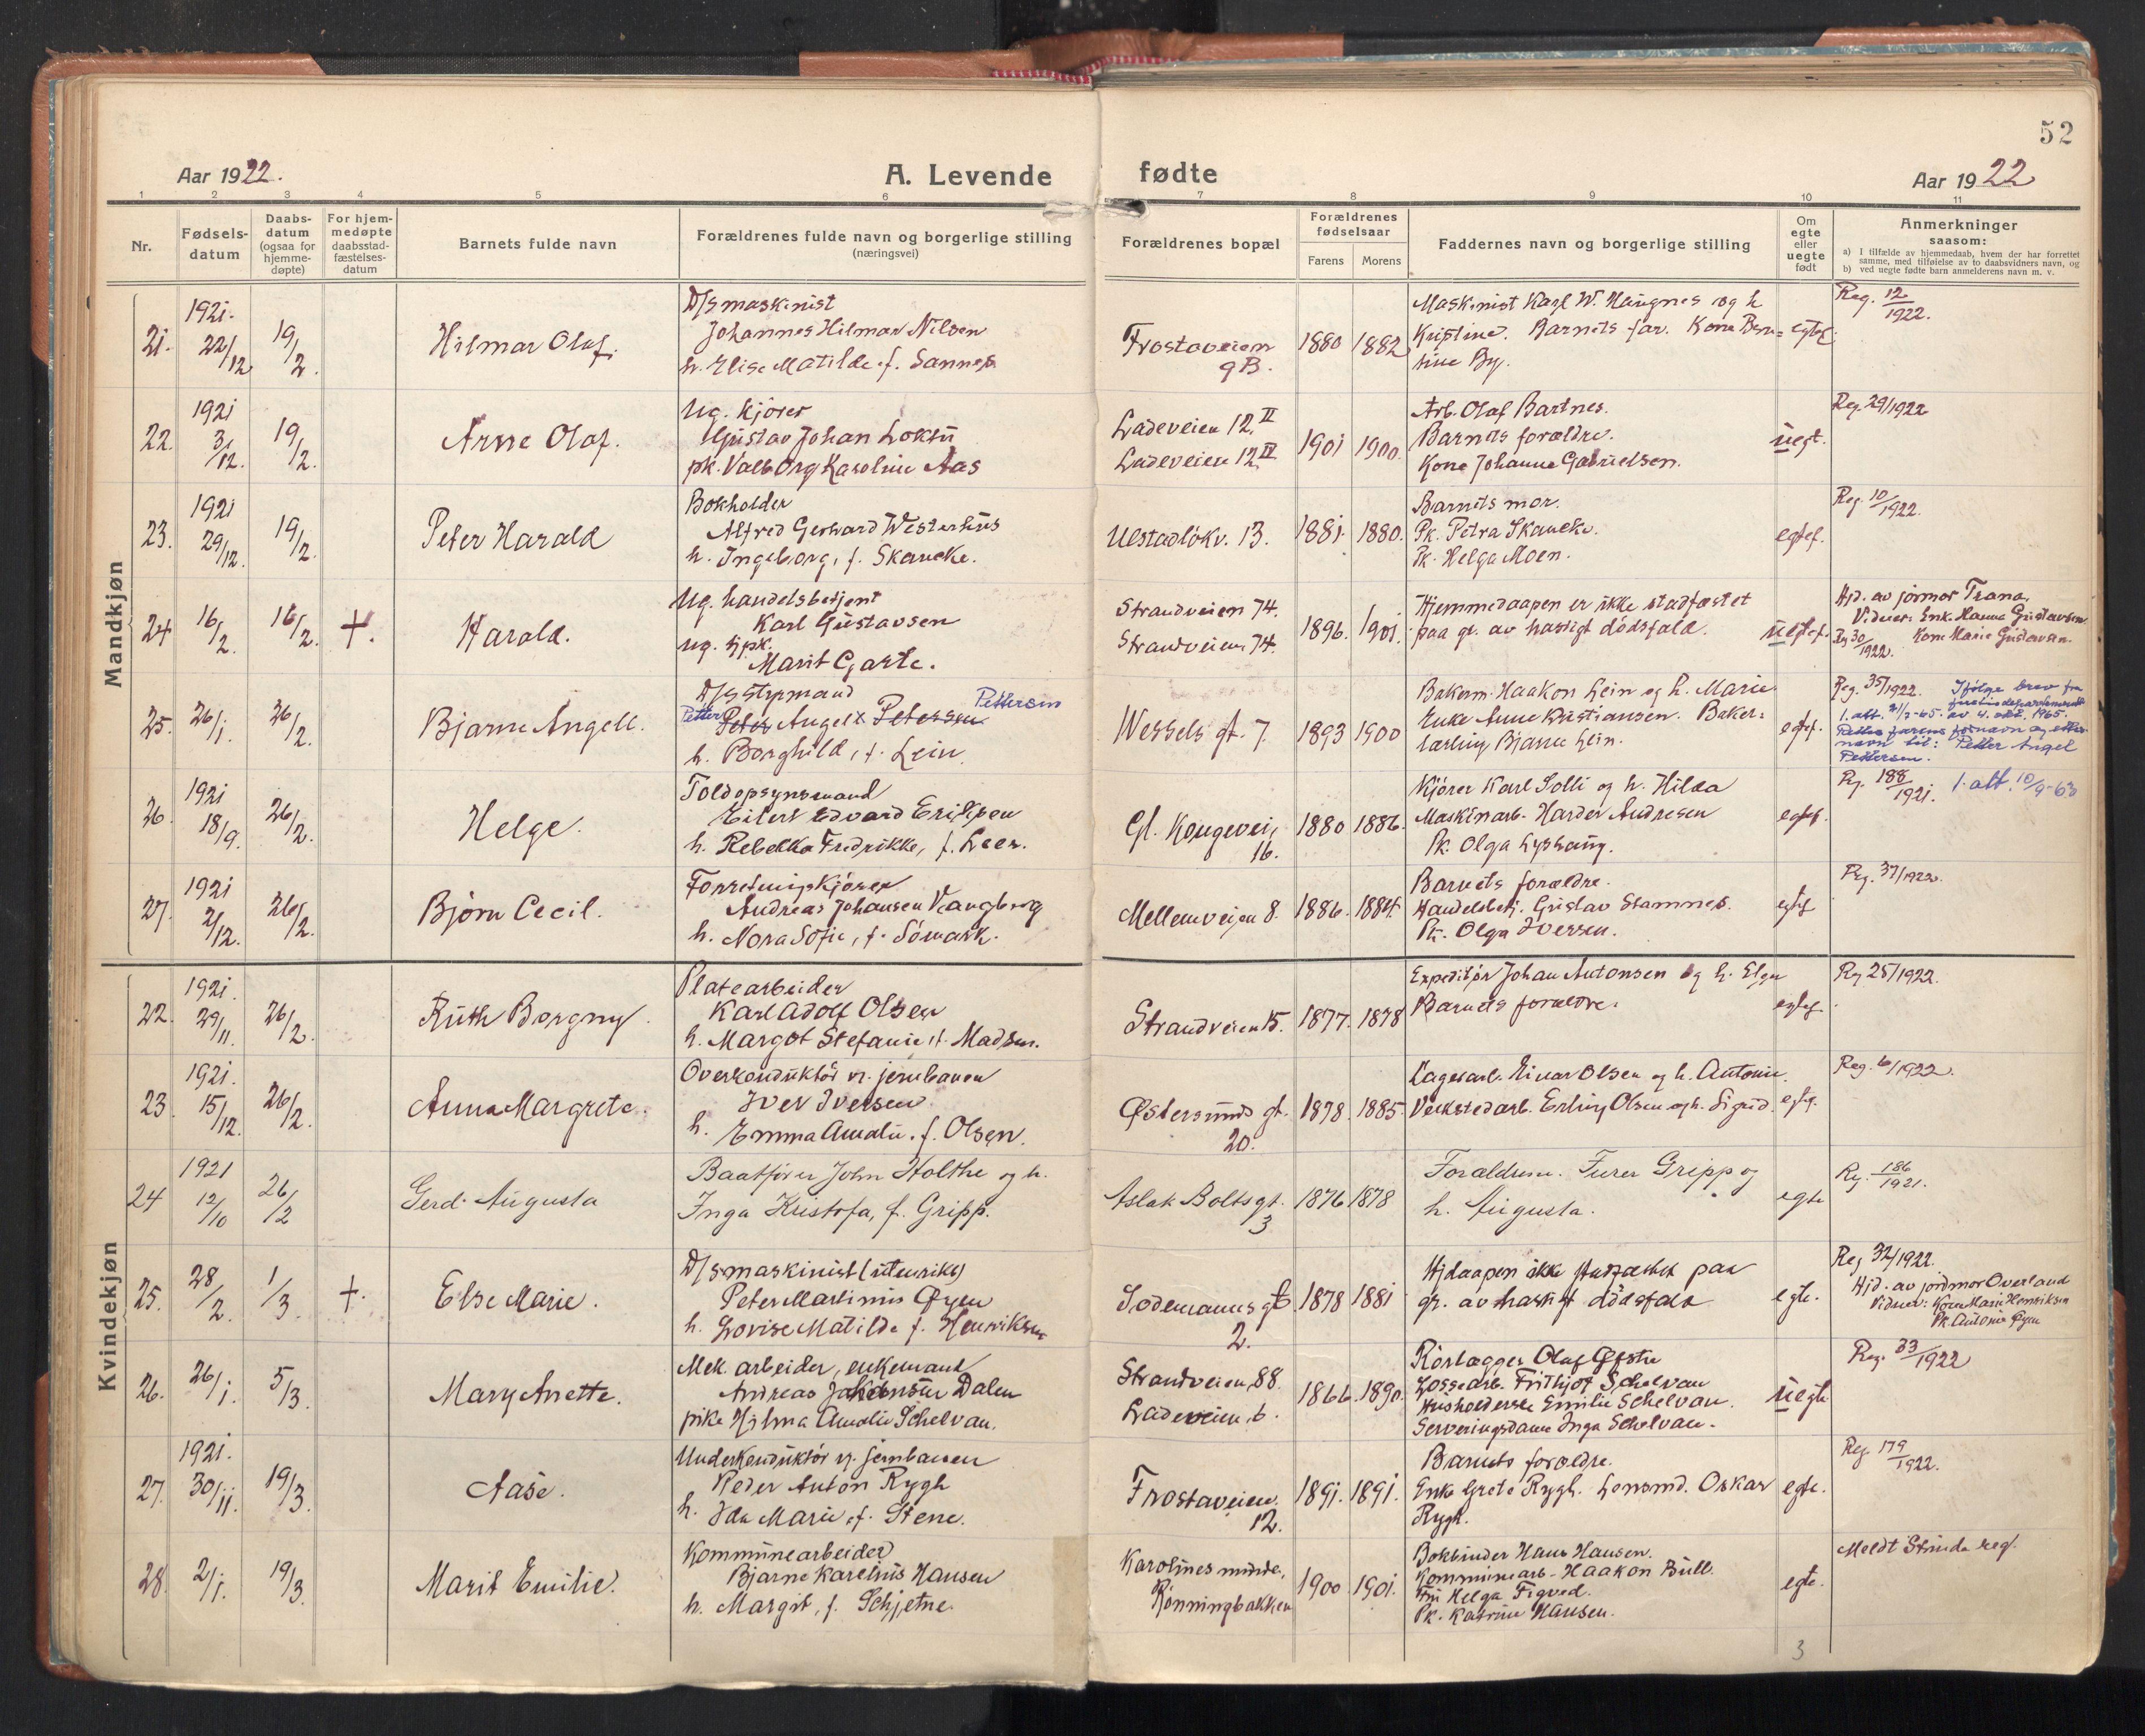 52
Aar 1922.
A. Levende fødte
Aar 1922
1 2 3 4 5 6 7 8 9 10 11
Nr.
Fødsels-
datum
Daabs-
datum
(ogsaa for
hjemme-
døpte)
For hjem-
medøpte
daabsstad-
fæstelses-
datum
Barnets fulde navn
Forældrenes fulde navn og borgerlige stilling
(næringsvei)
Forældrenes bopæl
Forældrenes
fødselsaar
Farens Morens
Faddernes navn og borgerlige stilling
Om
egte
eller
uegte
født
Anmerkninger
saasom:
a) I tilfælde av hjemmedaab, hvem der har forrettet
samme, med tilføielse av to daabsvidners navn, og
b) ved uegte fødte barn anmelderens navn m. v.
Mandkjøn
21. 1921. 22/12 19/2. Hilmar Olaf.
D/S maskinist
Johannes Hilmar Nilsen
h. Elise Matilde f. Sannes
Frostaveien
9B.
1880 1882
Maskinist Karl W. Haugnes og h
Kristine. Barnets far. Kone Bern=
tine By.
egtef.
Reg. 12/1922.
22. 1921 3/12. 19/2. Arne Olaf.
Ug. Kjører
Gustav Johan Loktu
pk. Valborg Karoline Aas
Ladeveien 12 II
Ladeveien 12 II
1901 1900.
Arb. Olaf Bartnes.
Barnets forældre.
Kone Johanne Gabrielsen.
uegt.
Reg. 29/1922
23. 1921 29/12. 19/2. Peter Harald
Bokholder
Alfred Gerhard Westerhus
h. Ingeborg, f. Skancke.
Ulstadløkv. 13.
1881. 1880.
Barnets mor.
Pk. Petra Skancke.
Pk. Helga Moen.
egtef.
Reg. 10/1922.
24 16/2. 16/2. +. Harald.
Ug. handelsbetjent
Karl Gustavsen
ug. tjpk.
Marit Garte.
Strandveien 74.
Strandveien 74.
1896. 1901.
Hjemmedaapen er ikke stadfæstet
paa gr. av hastigt dödsfald.
uegtef.
Hjd. av jormor Trana.
Vidner: Enk. Hanna Gustavsen
Kone Marie Gustavsen.
Reg 30/1922.
25. 26/1. 26/2. Bjarne Angell.
D/S styrmand
Petter Peter Angel Petersen Pettersen
h. Borghild, f. Lein.
Wessels gt. 7.
1893 1900
Bakerm. Haakon Lein og h. Marie
Enke Anne Kristiansen. Baker=
lærling Bjarne Lein.
egtef.
Reg. 35/1922. Ifölge brev fra
justisdepartementet
av 4. okt. 1965.
Rettes farens fornavn og etter-
navn til: Petter Angel
Pettersen.
26. 1921 18/9. 26/2. Helge.
Toldopsynsmand
Eilert Edvard Eriksen
h. Rebekka Fredrikke, f. Leer.
Gl. Kongevei,
16.
1880 1886.
Kjører Karl Solli og h. Hilda
Maskinarb. Harder Andresen
Pk. Olga Lyshaug.
egtef.
Reg. 188/1921. 1. att. 10/9-63
27. 1921 2/12. 26/2. Bjørn Cecil.
Forretningskjörer
Andreas Johansen Vangberg
h. Nora Sofie, f. Sömark.
Mellemveien 8.
1886. 1884.
Barnets forældre.
Handelsbetj. Gustav Stamnes.
Pk. Olga Iversen.
egtef
Reg. 37/1922.
Kvindekjøn
22. 1921. 29/11. 26/2. Ruth Borgny.
Platearbeider
Karl Adolf Olsen
h. Margot Stefanie, f. Madsen.
Strandveien 15.
1877. 1878
Expeditør Johan Antonsen og h. Elga
Barnets forældre.
egtef
Reg 25/1922.
23. 1921. 15/12. 26/2. Anna Margrete.
Overkonduktör v. jernbanen
Iver Iversen
h. Emma Amalie. f. Olsen.
Østersunds gt.
20.
1878. 1885.
Lagerarb. Einar Olsen og h. Antonie.
Verkstedarb. Erling Olsen og h. Sigrid.
egte.
Reg. 6/1922.
24 1921 12/10 26/2 Gerd Augusta
Baatfører John Holthe og h.
Inga Kristofa, f. Gripp.
Aslak Bolts gt.
3
1876 1878
Forældrene. Furer Gripp og
h. Augusta.
egte
Reg. 186/1921.
25. 28/2. 1/3. +. Else Marie.
D/S maskinist (utenriks)
Peter Martinus Øyen
h. Lovise Matilde f. Henriksen
Sodemanns gt
2.
1878 1881
Hjdaapen ikke stadfæstet paa
gr. av hastigt dödsfald
egte.
Reg 32/1922.
Hjd. av jordmor Overland
Vidner: Kone Marie Henriksen
Pk. Antonie Øyen
26. 26/1. 5/3. Mary Anette.
Mek. arbeider, enkemand
Andreas Johansen Dalen
pike Hjelma Amalie Schelvan.
Strandveien, 88.
Ladeveien, 6.
1866. 1890.
Rörlægger Olaf Øfsti
Lossearb. Frithjof Schelvan
Husholderske Emilie Schelvan.
Serveringsdame Inga Schelvan.
uegte
Reg. 33/1922
27. 1921. 30/11. 19/3. Aase.
Underkonduktör v. jernbanen
Peder Anton Rygh
h. Ida Marie, f. Stene.
Frostaveien.
12.
1891. 1891.
Barnets forældre.
Enke Grete Rygh. Lensmd. Oskar
Rygh.
egte.
Reg 179/1922.
28. 2/1. 19/3. Marit Emilie.
Kommunearbeider
Bjarne Karelius Hansen
h. Margit, f. Schjetne.
Karolines minde,
Rønningbakken
1900 1901.
Bokbinder Hans Hansen.
Kommunearb. Haakon Bull.
Fru Helga Figved.
Pk. Katrine Hansen.
egte.
Meldt Strinda reg.
3